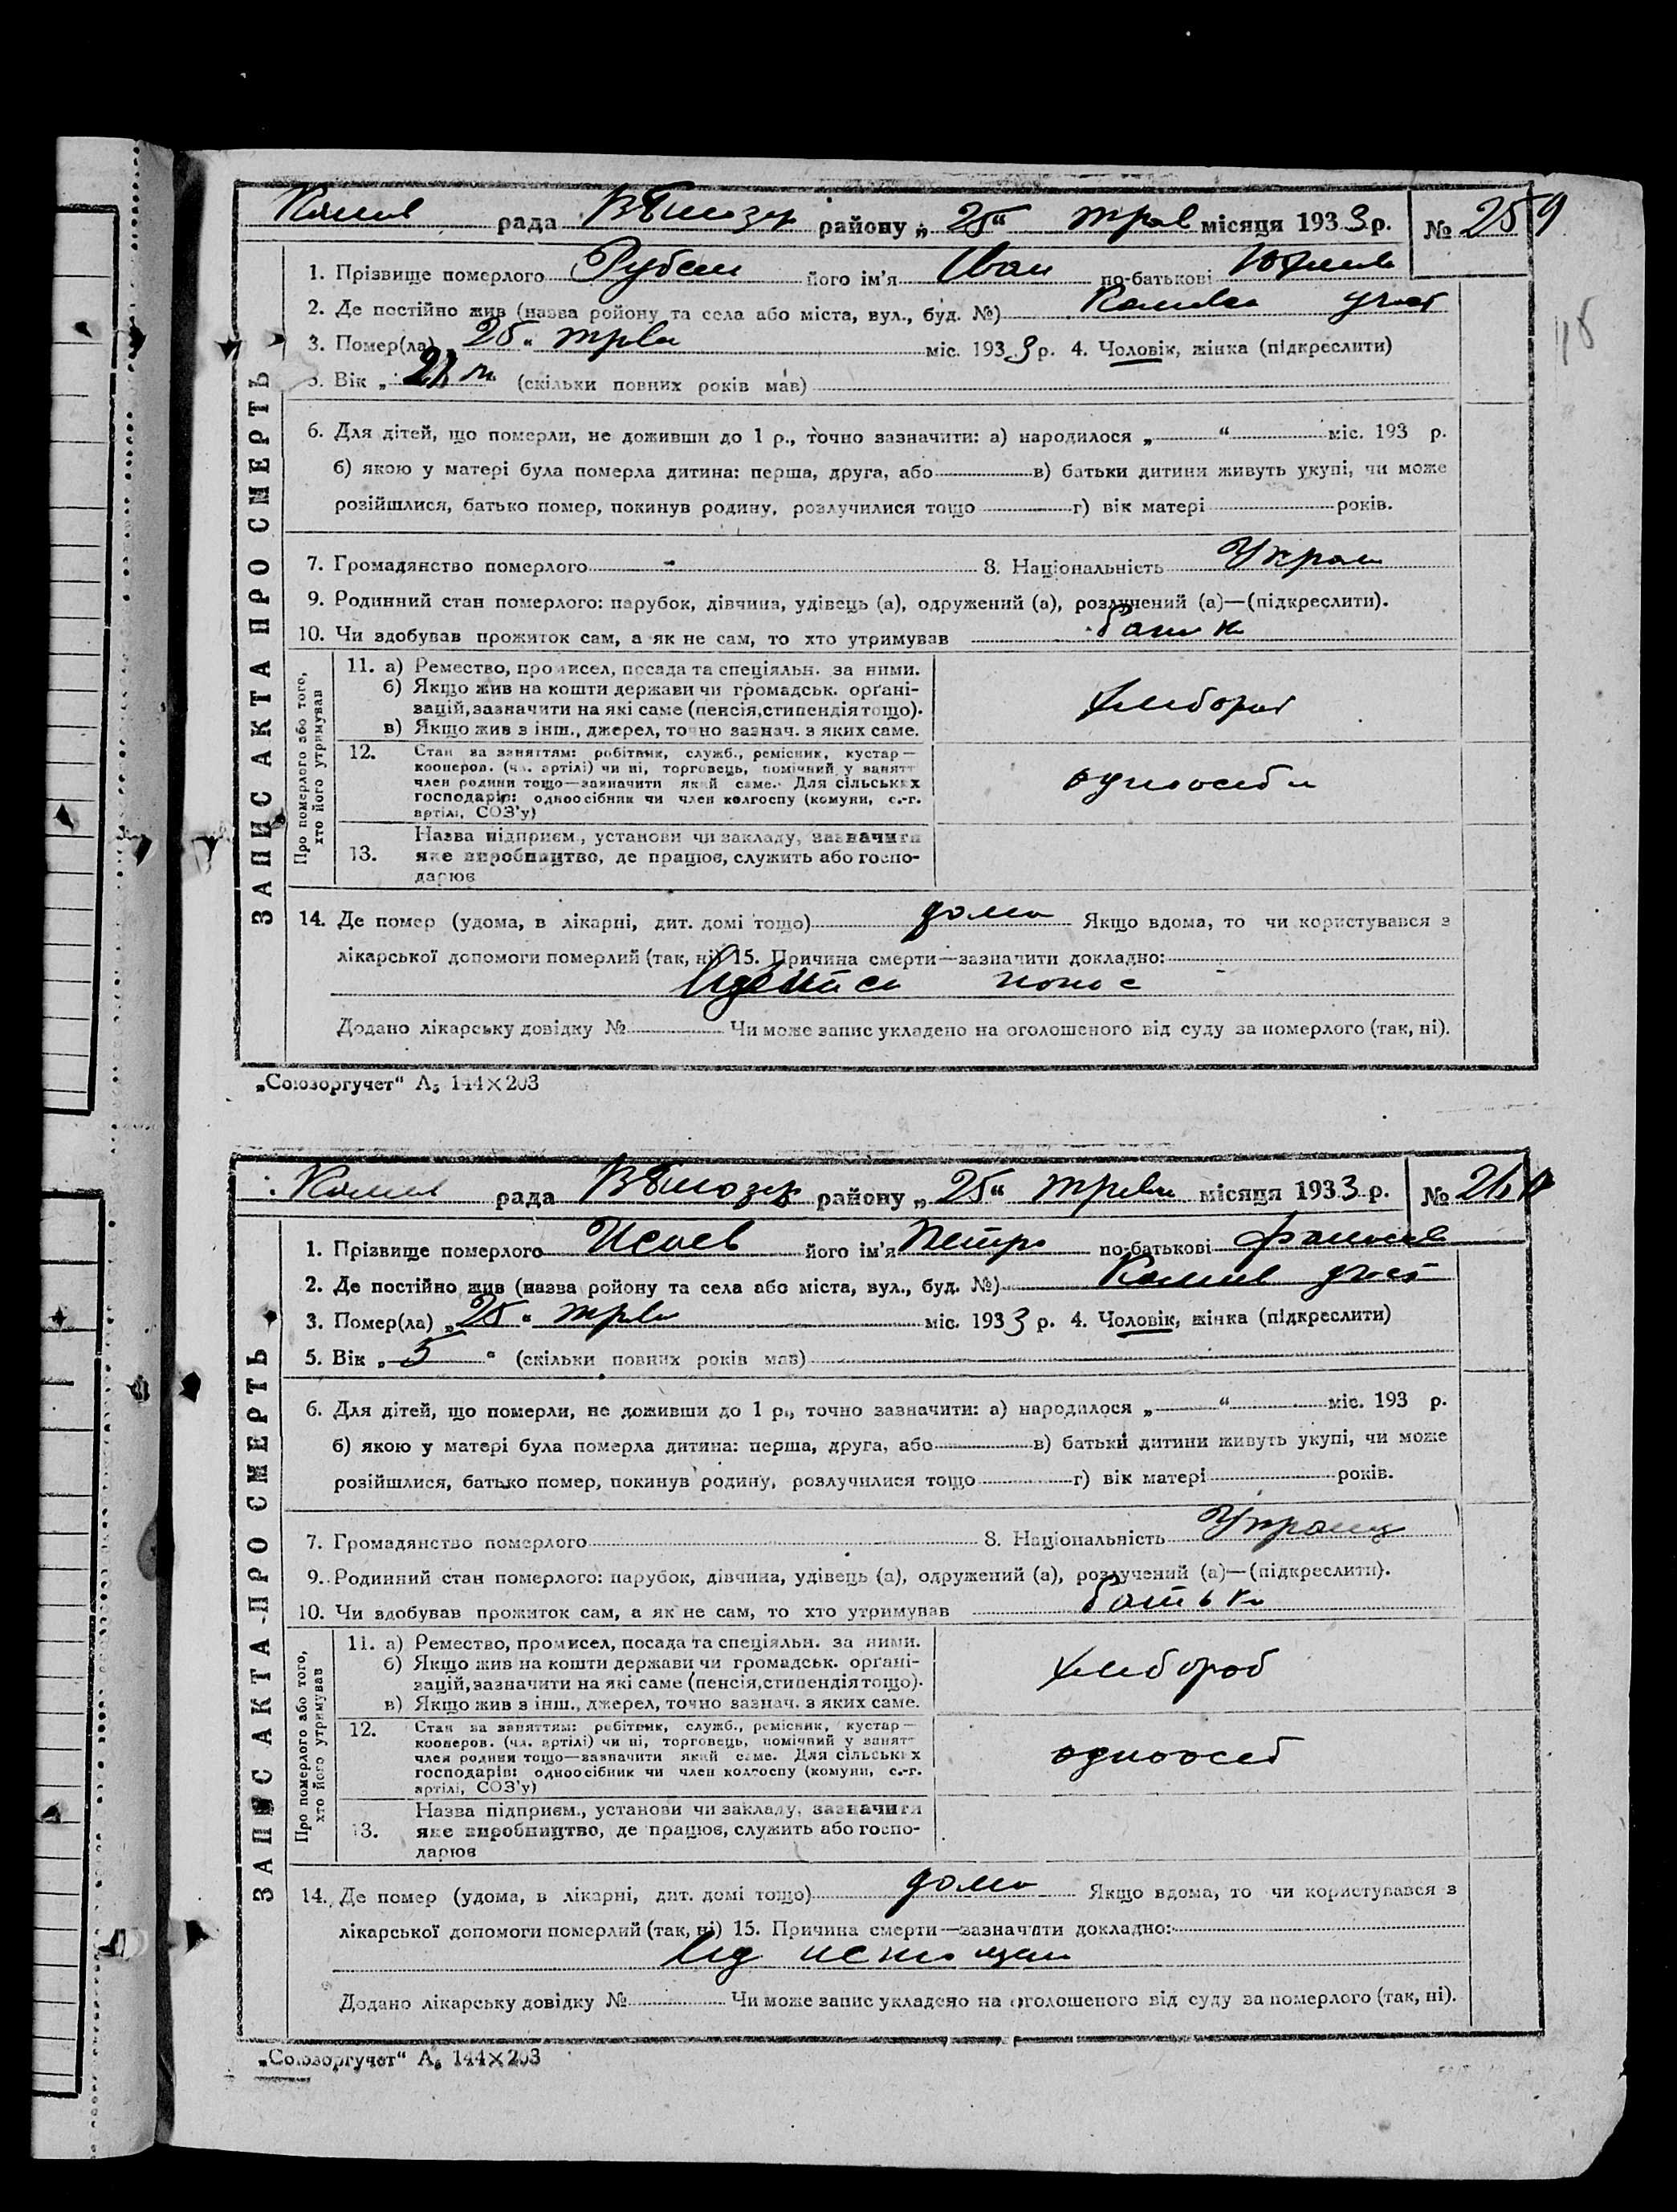 рада В Білозер району „ 25 “ трав місяця 1933 р. № 259
1. Прізвище померлого його ім'я Іван по-батькові
2. Де постійно жив (назва ройону та села або міста, вул., буд. №)
3. Помер(ла) „ 25 “ трвн міс. 1933 р. 4. Чоловік, жінка (підкреслити)
5. Вік „ “ (скільки повних років мав)
6. Для дітей, що померли, не доживши до 1 р., точно зазначити: а) народилося „ “ міс. 193 р.
б) якою у матері була померла дитина: перша, друга, або в) батьки дитини живуть укупі, чи може
розійшлися, батько помер, покинув родину, розлучилися тощо г) вік матері років.
7. Громадянство померлого - 8. Національність Украін
9. Родинний стан померлого: парубок, дівчина, удівець (а), одружений (а), розлучений (а)—(підкреслити).
10. Чи здобував прожиток сам, а як не сам, то хто утримував
ЗАПИС АКТА ПРО СМЕРТЬ
Про померлого або того,
хто його утримував
11. а) Ремество, промисел, посада та спеціяльн. за ними.
б) Якщо жив на кошти держави чи громадськ. орґані-
зацій, зазначити на які саме (пенсія, стипендія тощо).
в) Якщо жив з інш., джерел, точно зазнач. з яких саме.
хлебороб
12. Стан за заняттям: робітник, служб., ремісник, кустар—
кооперов. (чл. артілі) чи ні, торговець, помічний у занятт
член родини тощо—зазначити який саме. Для сільських
господарів: одноосібник чи член колгоспу (комуни, с.-г.
артілі, СОЗ'у)
одноосеб
13. Назва підприєм., установи чи закладу, зазначити
яке виробництво, де працює, служить або госпо-
дарює
14. Де помер (удома, в лікарні, дит. домі тощо) дома Якщо вдома, то чи користувався з
лікарської допомоги померлий (так, ні) 15. Причина смерти—зазначити докладно:
понос
Додано лікарську довідку № Чи може запис укладено на оголошеного від суду за померлого (так, ні).
„Союзоргучет“ А5 144×203
рада В Білозер району „ 25 “ трвн місяця 1933 р. № 260
1. Прізвище померлого Исаев його ім'я Петро по-батькові
2. Де постійно жив (назва ройону та села або міста, вул., буд. №)
3. Помер(ла) „ 25 “ трвн міс. 1933 р. 4. Чоловік, жінка (підкреслити)
5. Вік „ 5 “ (скільки повних років мав)
6. Для дітей, що померли, не доживши до 1 р., точно зазначити: а) народилося „ “ міс. 193 р.
б) якою у матері була померла дитина: перша, друга, або в) батьки дитини живуть укупі, чи може
розійшлися, батько помер, покинув родину, розлучилися тощо г) вік матері років.
7. Громадянство померлого 8. Національність Украінц
9. Родинний стан померлого: парубок, дівчина, удівець (а), одружений (а), розлучений (а)—(підкреслити).
10. Чи здобував прожиток сам, а як не сам, то хто утримував батьки
ЗАПИС АКТА ПРО СМЕРТЬ
Про померлого або того,
хто його утримував
11. а) Ремество, промисел, посада та спеціяльн. за ними.
б) Якщо жив на кошти держави чи громадськ. орґані-
зацій, зазначити на які саме (пенсія, стипендія тощо).
в) Якщо жив з інш., джерел, точно зазнач. з яких саме.
хлебороб
12. Стан за заняттям: робітник, служб., ремісник, кустар—
кооперов. (чл. артілі) чи ні, торговець, помічний у занятт
член родини тощо—зазначити який саме. Для сільських
господарів: одноосібник чи член колгоспу (комуни, с.-г.
артілі, СОЗ'у)
одноосеб
13. Назва підприєм., установи чи закладу, зазначити
яке виробництво, де працює, служить або госпо-
дарює
14. Де помер (удома, в лікарні, дит. домі тощо) дома Якщо вдома, то чи користувався з
лікарської допомоги померлий (так, ні) 15. Причина смерти—зазначити докладно:
Від
Додано лікарську довідку № Чи може запис укладено на оголошеного від суду за померлого (так, ні).
„Союзоргучет“ А5 144×203